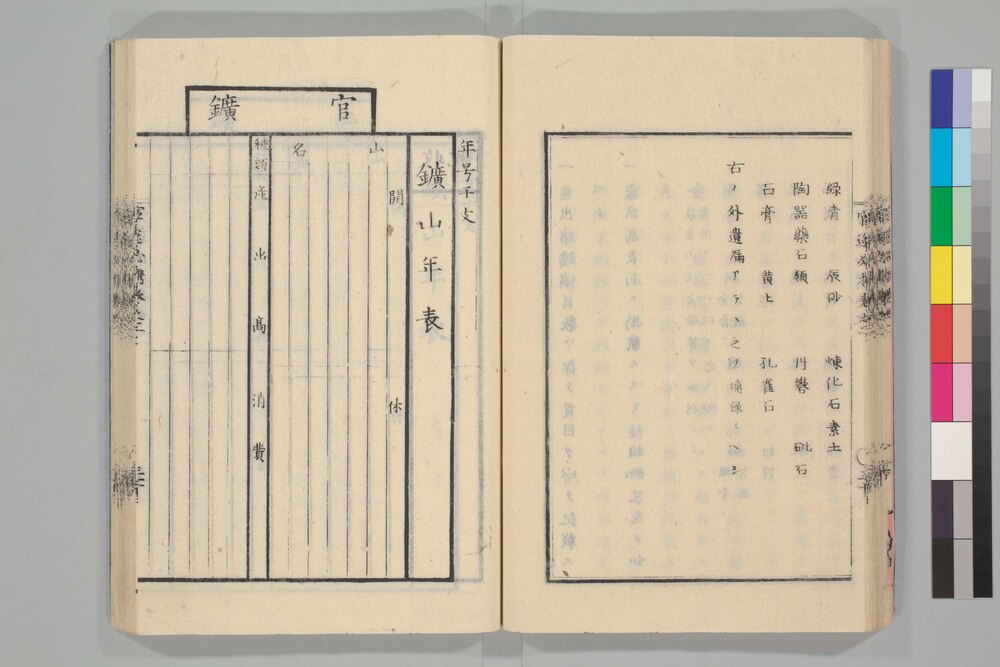 緑青 辰砂 煉化石素土
陶器藥石類 丹礬 砒石
石膏 黄土 孔雀石
右ノ外遺漏アラハ之ヲ
年号干支
官鑛
鑛山年表
開 休
山名
種類産出高 消費